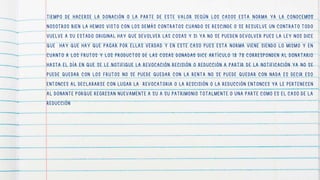 TIEMPO DE HACERSE LA DONACIÓN O LA PARTE DE ESTE VALOR SEGÚN LOS CASOS ESTA NORMA YA LA CONOCEMOS
NOSOTROS BIEN LA HEMOS VISTO CON LOS DEMÁS CONTRATOS CUANDO SE RESCINDE O SE RESUELVE UN CONTRATO TODO
VUELVE A SU ESTADO ORIGINAL HAY QUE DEVOLVER LAS COSAS Y SI YA NO SE PUEDEN DEVOLVER PUES LA LEY NOS DICE
QUE HAY QUE HAY QUE PAGAR POR ELLAS VERDAD Y EN ESTE CASO PUES ESTA NORMA VIENE SIENDO LO MISMO Y EN
CUANTO A LOS FRUTOS Y LOS PRODUCTOS DE LAS COSAS DONADAS DICE ARTÍCULO 18 78 CORRESPONDEN AL DONATARIO
HASTA EL DÍA EN QUE SE LE NOTIFIQUE LA REVOCACIÓN RECISIÓN O REDUCCIÓN A PARTIR DE LA NOTIFICACIÓN YA NO SE
PUEDE QUEDAR CON LOS FRUTOS NO SE PUEDE QUEDAR CON LA RENTA NO SE PUEDE QUEDAR CON NADA ES DECIR ESO
ENTONCES AL DECLARARSE CON LUGAR LA REVOCATORIA O LA RESCISIÓN O LA REDUCCIÓN ENTONCES YA LE PERTENECEN
AL DONANTE PORQUE REGRESAN NUEVAMENTE A SU A SU PATRIMONIO TOTALMENTE O UNA PARTE COMO ES EL CASO DE LA
REDUCCIÓN